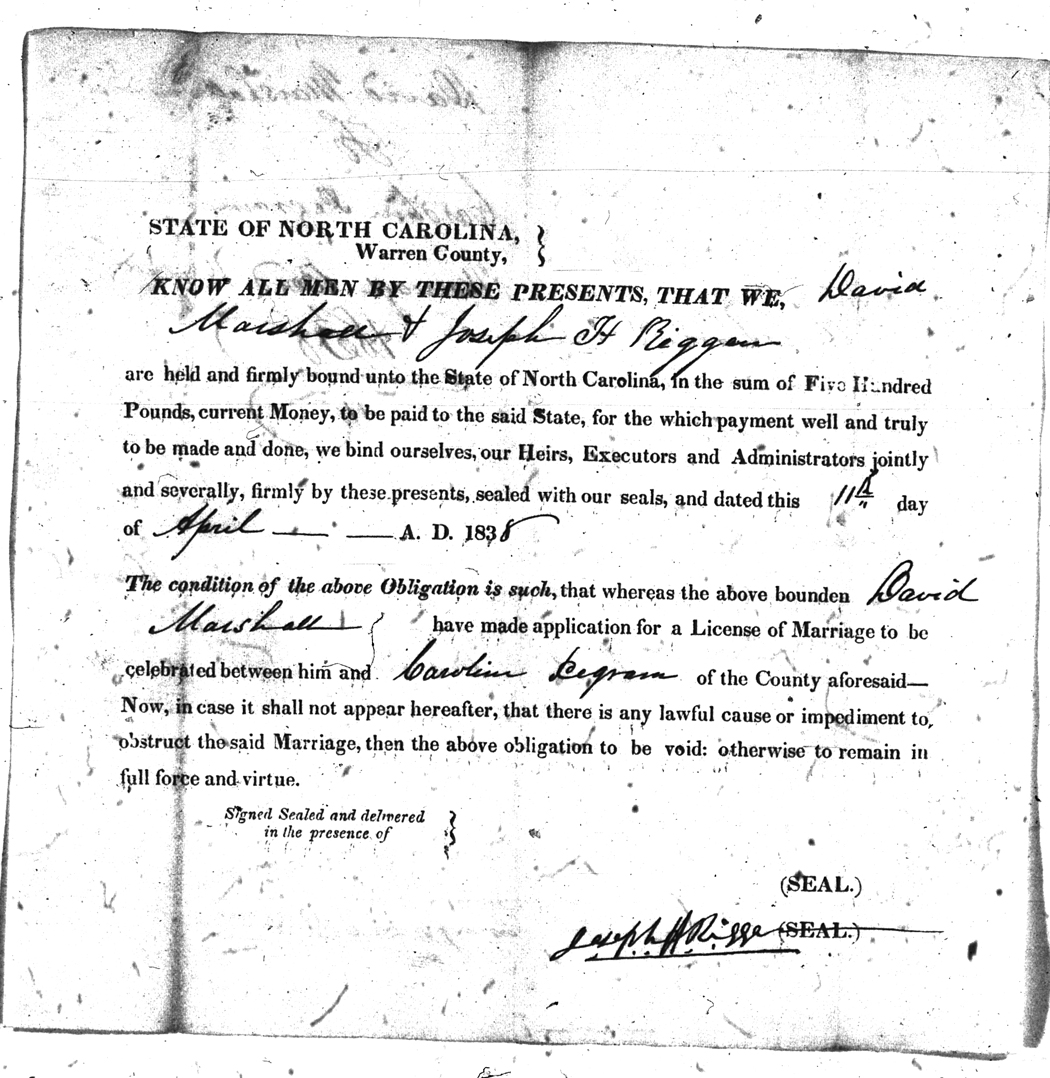 STATE OF NORTH CAROLINA,
Warren County,
KNOW ALL MEN BY THESE PRESENTS, THAT WE, David
Marshall & Joseph H Riggan
are held and firmly bound unto the State of North Carolina, in the sum of Five Hundred
Pounds, current Money, to be paid to the said State, for the which payment well and truly
to be made and done, we bind ourselves, our Heirs, Executors and Administrators jointly
and severally, firmly by these presents, sealed with our seals, and dated this 11th day
of April A. D. 1838
The condition of the above Obligation is such, that whereas the above bounden David
Marshall have made application for a License of Marriage to be
celebrated between him and Carolin Pegram of the County aforesaid—
Now, in case it shall not appear hereafter, that there is any lawful cause or impediment to
obstruct the said Marriage, then the above obligation to be void: otherwise to remain in
full force and virtue.
Signed Sealed and delivered
in the presence of
(SEAL.)
Joseph H Rigga (SEAL.)